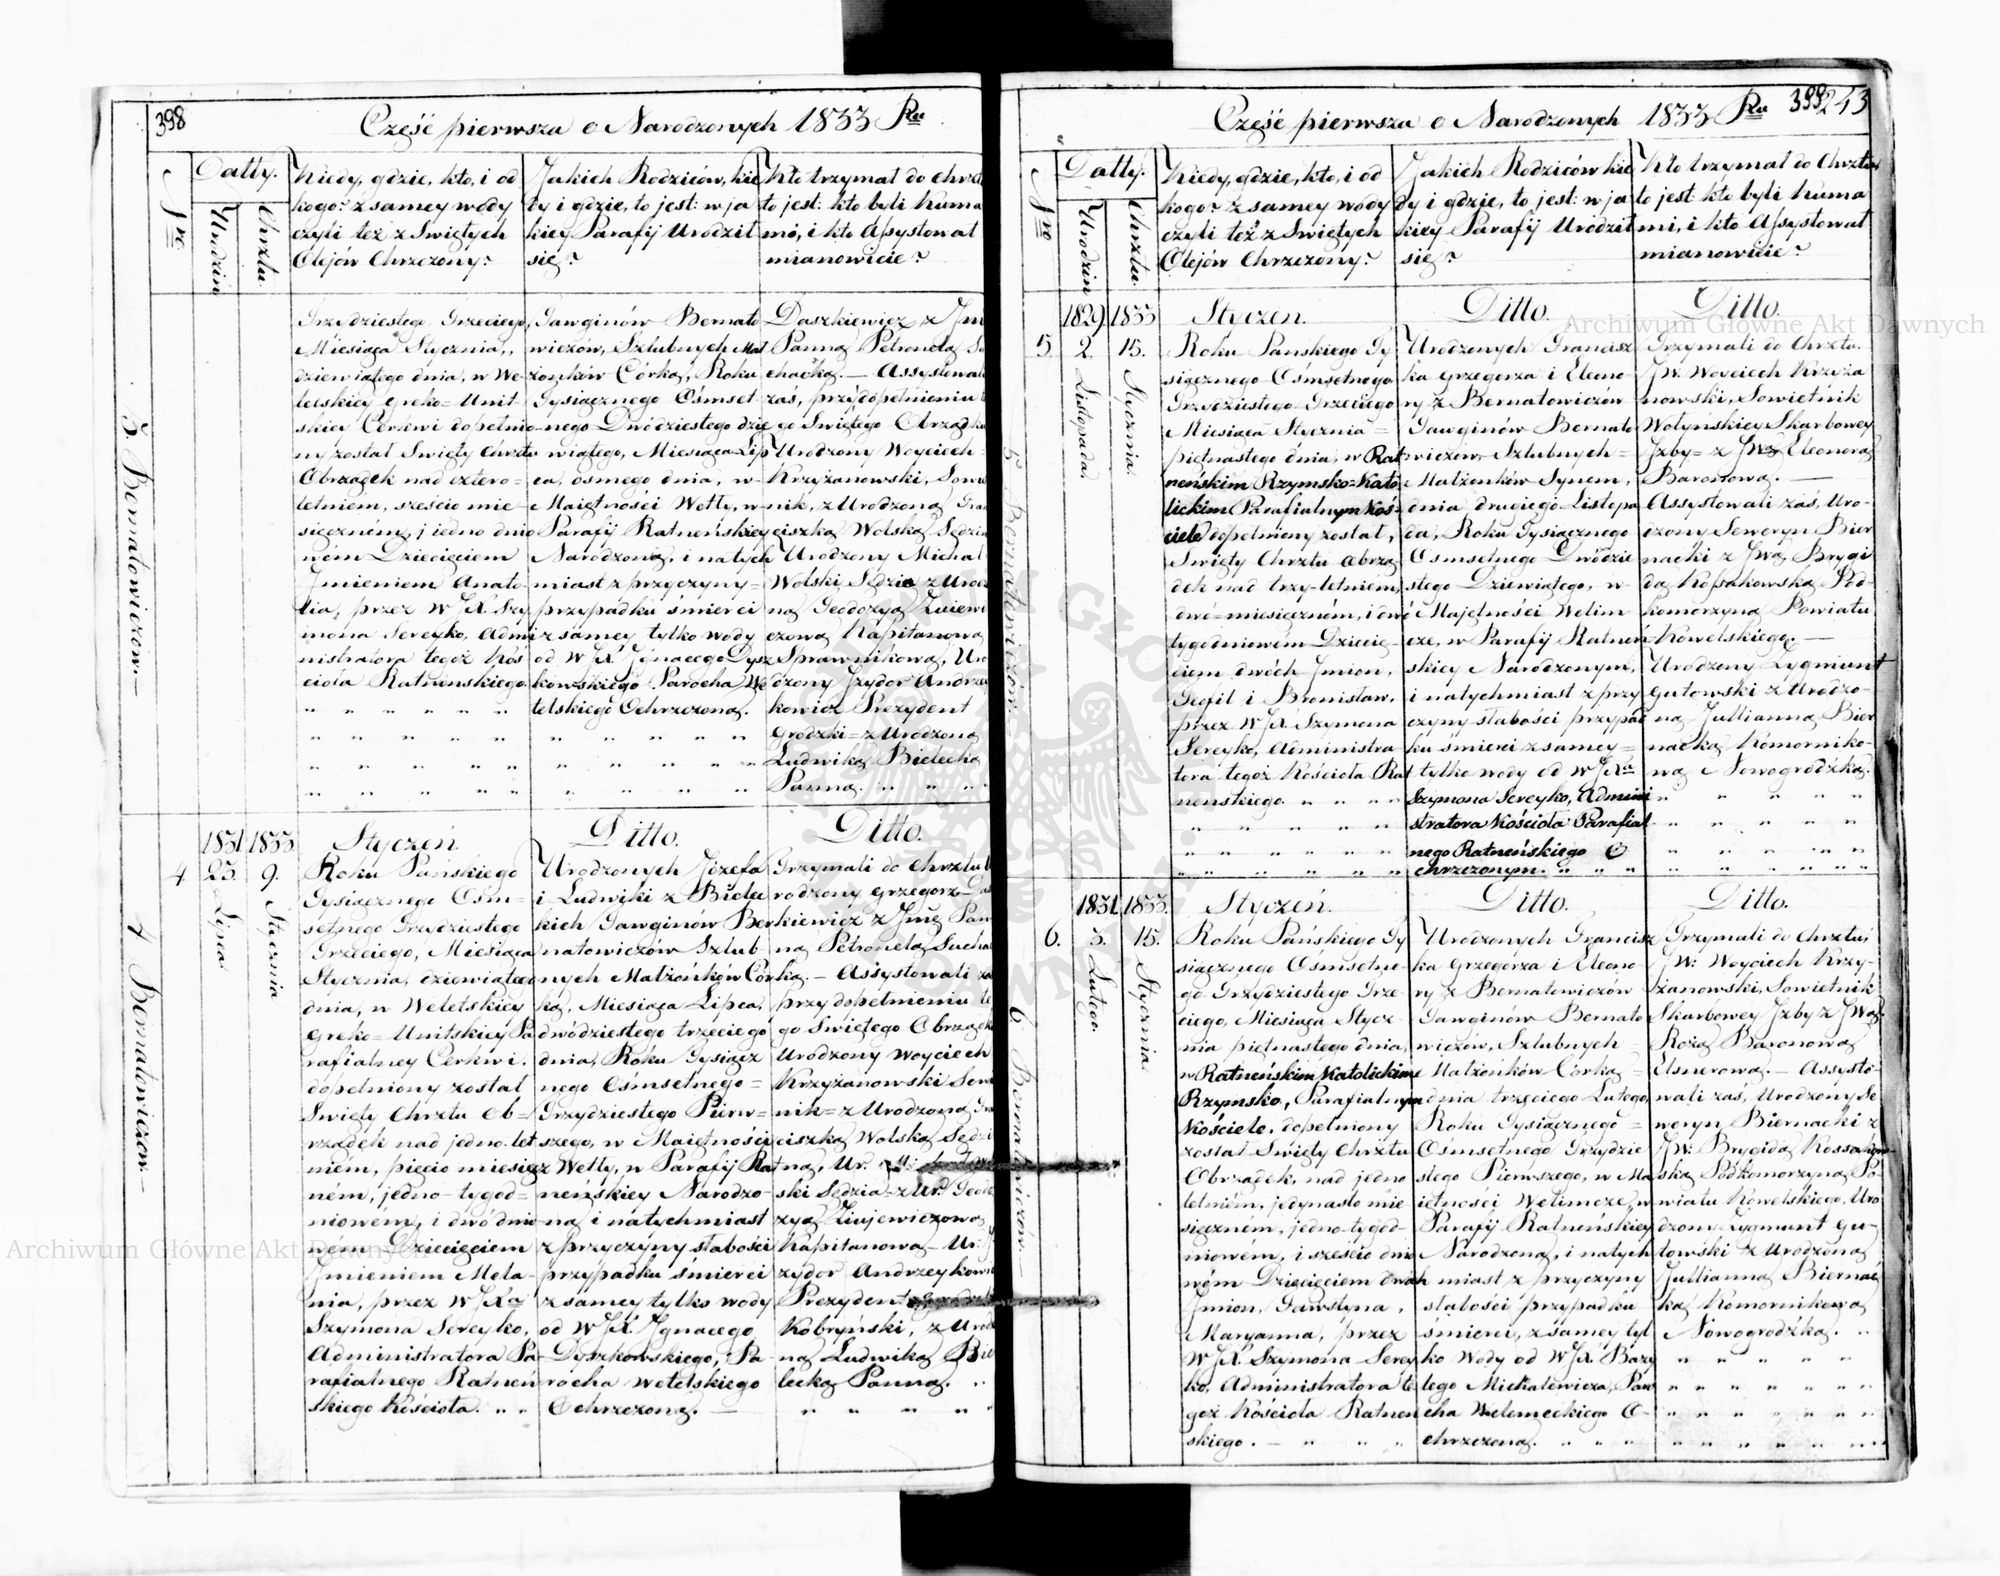 398
Część pierwsza o Narodzonych 1833 Ru
Nro
Datty.
Urodzin
Chrztu.
Kiedy, gdzie, kto, i od
kogo? z samey wody
czyli też z Swiętych
Olejów Chrzczony?
Jakich Rodziców, kie
dy i gdzie, to jest: w ja
kiey Parafij Urodził
się?
Kto trzymał do chrztu
to jest: kto byli Kuma
mi, i kto Assystował
mianowicie?
3. Bernatowiczów.—
Trzydziestego Trzeciego,
Miesiąca Stycznia,,
dziewiątego dnia, w We-
letskiey Greko=Unit
skiey Cerkwi dopełnio-
ny został Swięty Chrztu
Obrządek nad cztero=
letniem, sześcio mie-
sięcznem, j jedno dnio
wém Dziecięciem
Jmieniem Anato-
lia, przez W JX. Szy
mona Sereyko, Admi
nistratora tegoż Koś
cioła Ratnenskiego
Gawginów Bernato
wiczów, Szlubnych Mał
żonków Córką, Roku
Tysiącznego Ośmset-
nego Dwódziestego dzie
wiątego, Miesiąca Lip
ca, osmego dnia, w-
Maiętności Wetty, w-
Parafij Ratneńskiey
Narodzoną, i natych
miast z przyczyny=
przypadku śmierci
z samey tylko wody
od W JX. Jgnacego Dysz
kowskiego Parocha We
letskiego Ochrzczoną.
Daszkiewicz z Jm
Panną Petronelą Su
chacką.— Assystowali
zaś, przy dopełnieniu
go Swiętego Obrządku
Urodzony Woyciech
Krzyżanowski, Sowie
nik, z Urodzoną Fran
ciszką Wolską Sędzin
Urodzony Michał
Wolski Sędzia z Urod
ną Teodozyą Żuiew
czową Kapitanową
Sprawnikową, Uro
dzony Jzydor Andrzey
kowicz Prezydent
Grodzki=z Urodzoną
Ludwiką Bielecką
Panną.
1831 1833
4 23. 9.
Lipca
Stycznia
4 Bernatowiczow.—
Styczeń.
Roku Pańskiego
Tysiącznego Ośm=
setnego Trzydziestego
Trzeciego, Miesiąca
Stycznia, dziewiątego
dnia, w Weletskiey
Greko=Unitskiey Pa
rafialney Cerkwi.
dopełniony został
Swięty Chrztu Ob-
rządek nad jedno let
niém, pięcio miesięcz
ném, jedno-tygod=
niowém, i dwódnio
wém Dziecięciem
Jmieniem Mela-
nia, przez W JXa
Szymona Sereyko,
Administratora Pa
rafialnego Ratnen
skiego Kościoła.
Ditto.
Urodzonych Józefa
i Ludwiki z Bielec
kich Gawginów Ber
natowiczów Szlub-
nych Małżonków Cór
ką, Miesiąca Lipca,
dwódziestego trzeciego
dnia, Roku Tysiącz
nego Ośmsetnego=
Trzydziestego Pierw=
szego, w Maiętności
Wetty, w Parafij Rat
neńskiey Narodzo-
ną i natychmiast
z przyczyny słabości
przypadku śmierci
z samey tylko wody
od W JX. Jgnacego
Dyszkowskiego, Pa-
rocha Weletskiego
Ochrzczoną.—
Ditto.
Trzymali do chrztu U
rodzony Grzegorz Dasz
kiewicz z Jmę Pan
ną Petronelą Sucha
cką.— Assystowali za
przy dopełnieniu te
go Swiętego Obrządku
Urodzony Woyciech
Krzyżanowski Sowie
nik=z Urodzoną Fran
ciszką Wolską Sędzi
ną, Ur.
ski Sędzia=z Ur. Teodo
zyą Żiujewiczową
Kapitanową—Ur. J
zydor Andrzeykowi
Prezydent
Kobryński, z Urod
ną Ludwiką Bie
lecką Panną.
399 243
Część pierwsza o Narodzonych 1833 Ru
Nro
Datty.
Urodzin
Chrztu.
Kiedy, gdzie, kto, i od
kogo? z samey wody
czyli też z Swiętych
Olejów Chrzczony?
Jakich Rodziców kie
dy i gdzie, to jest: w ja
kiey Parafij Urodził
się?
Kto trzymał do Chrztu
to jest: kto byli Kuma
mi, i kto Assystował
mianowicie?
1829 1833
5. 2. 15.
Listopada.
Stycznia
5 Bernatowiczów.—
Styczeń.
Roku Pańskiego Ty
siącznego Ośmsetnego
Trzydziestego Trzeciego
Miesiąca Stycznia=
piętnastego dnia, w Rat
neńskim Rzymsko=Kato
lickim Parafialnym Koś-
ciele dopełniony został,
Swięty Chrztu Obrzą
dek nad trzy-letniém,
dwó-miesięczném, i dwó
tygodniowém Dziecię-
ciem dwóch Jmion,
Teofil i Bronisław,
przez W JX Szymona
Sereyko, Administra
tora tegoż Kościoła Rat
nenskiego.
Ditto.
Urodzonych Francisz
ka Grzegorza i Eleono-
ry z Bernatowiczów
Gawginów Bernato
wiczów, Szlubnych=
Małżonków Synem,
dnia drugiego Listopa
da, Roku Tysiącznego
Osmsetnego Dwódzie
stego Dziewiątego, w-
Majętności Welim
cze, w Parafij Ratneń-
skiey Narodzonym,
i natychmiast z przy
czyny słabości przypad
ku śmierci z samey=
tylko wody od W JXa
Szymona Sereyko, Admini
stratora Kościoła Parafial
nego Ratneńskiego O
chrzczonym.
Ditto.
Trzymali do Chrztu.
JW. Woyciech Krzyża
nowski, Sowietnik
Wołynskiey Skarbowey
Jzby=z JWą Eleonorą
Baronową.—
Assystowali zaś, Uro-
dzony Seweryn Bier
nacki z JWą Brygi
dą Kossakowską Pod-
komorzyną Powiatu
Kowelskiego.—
Urodzony Zygmunt
Gutowski z Urodzo-
ną Jullianną Bier
nacką Komorniko-
wą Nowogrodzką.
1831 1833.
6. 3. 15.
Lutego.
Stycznia
6 Bernatowiczów.—
Styczeń.
Roku Pańskiego Ty
siącznego Ośmsetne-
go Trzydziestego Trze-
ciego, Miesiąca Stycz-
nia piętnastego dnia,
w Ratneńskim Katolickim
Rzymsko, Parafialnym
Kościele, dopełniony
został Swięty Chrztu
Obrządek, nad jedno
letniém, jedynasto mie
sięczném, jedno-tygod-
niowém, i sześcio dnio
wém Dziecięciem dwóh
Jmion, Fawstyna,
Maryanna, przez
W JX. Szymona Serey
ko, Administratora te
goż Kościoła Ratnen
skiego.—
Ditto.
Urodzonych Francisz
ka Grzegórza i Eleono-
ry z Bernatowiczów
Gawginów Bernato
wiczów, Szlubnych=
Małżonków Córką=
dnia trzeciego Lutego,
Roku Tysiącznego=
Ośmsetnego Trzydzie
stego Pierwszego, w Ma
iętności Welimcze, w
Parafij Ratneńskiey
Narodzoną, i natych
miast z przyczyny
słabości przypadku
śmierci, z samey tyl
ko Wody od W JX. Bazy
lego Michalewicza, Par
cha Welemeckiego O-
chrzczoną.
Ditto.
Trzymali do Chrztu;
JW: Woyciech Krzy-
żanowski, Sowietnik
Skarbowey Jzby z JWą.
Rożą Baronową
Elsnerową.— Assysto-
wali zaś, Urodzony Se
weryn Biernacki z
JW: Brygidą Kossakow
ską Podkomorzyną Po-
wiatu Kowelskiego, Uro
dzony Zygmunt Gu-
towski z Urodzoną
Jullianną Biernac
ką Komornikową
Nowogrodzką.
Archiwum Główne Akt Dawnych
Archiwum Główne Akt Dawnych